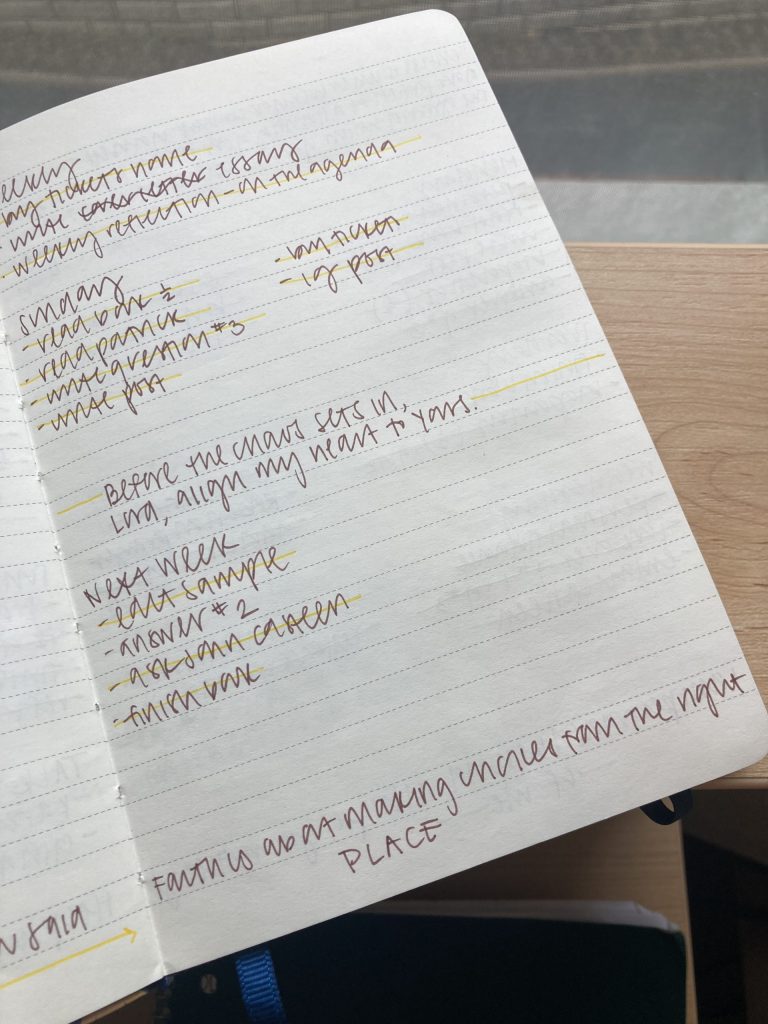 weekly
- buy tickets home
- write essay
- weekly reflection - in the agenda
Sunday
- read book ½
- read patrick
- write question #3
- write post
- buy ticket
- ig post
Before the chaos sets in,
Lord, align my heart to yours.
Next Week
- edit sample
- answer #2
- ask
- finish book
Faith is about making choices from the right
PLACE
said